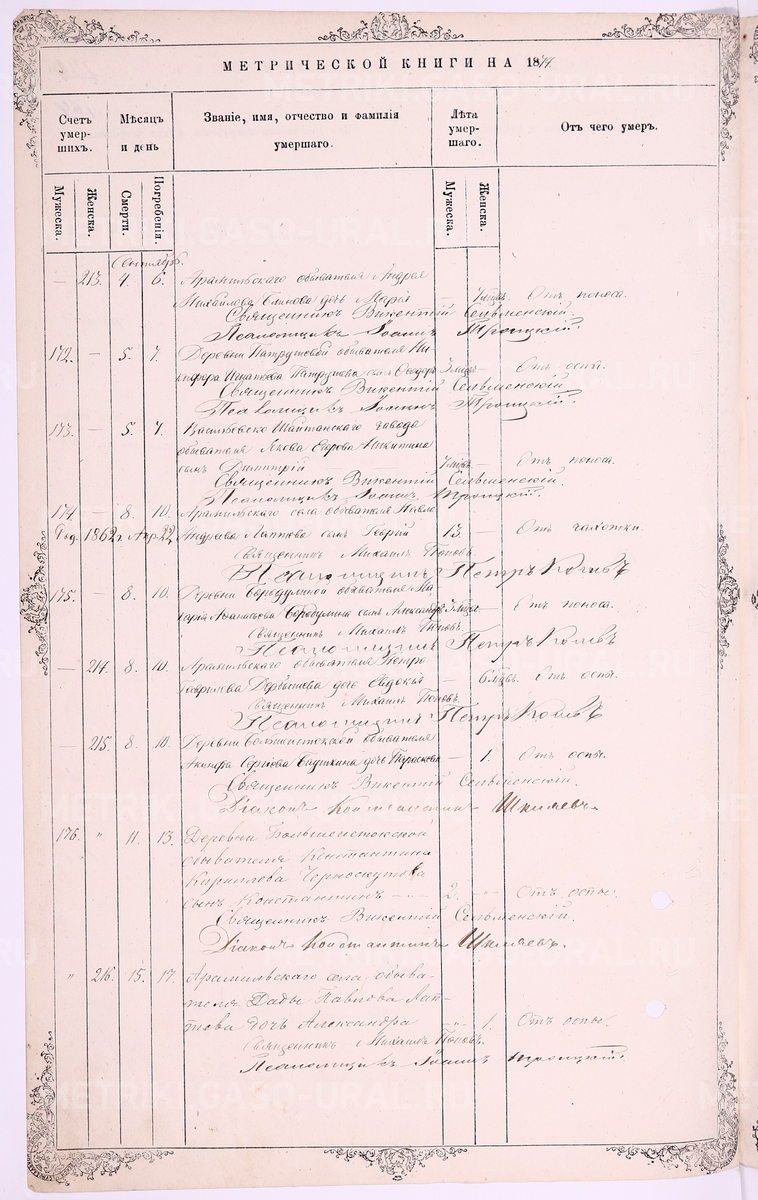 МЕТРИЧЕСКОЙ КНИГИ НА 1874
Счетъ умер-шихъ.
Мѣсяцъ и день
Званіе, имя, отчество и фамилія умершаго.
Лѣта умер-шаго.
Отъ чего умеръ.
Мужеска.
Женска.
Смерти.
Погребенія.
Мужеска.
Женска.
Сентябрь.
— 213. 4. 6. Арамильскаго обывателя Андрея
Михайлова Блинова дочь Марія — Отъ поноса.
Священникъ Викентій Сельменскій.
Псаломщикъ Іоаннъ Троицкій.
172. — 5. 7. Деревни Патрушевой обывателя Ни-
кифора Патрушева сынъ Ѳеодоръ 3 мцъ — Отъ оспы.
Священникъ Викентій Сельменскій.
Псаломщикъ Іоаннъ Троицкій.
173. — 5. 7. Васильевско Шайтанскаго завода
обывателя Якова Егорова Никитина
сынъ Димитрій — Отъ поноса.
Священникъ Викентій Сельменскій.
Псаломщикъ Іоаннъ Троицкій.
174. — 8. 10. Арамильскаго села обывателя Павла
Род. 1862 г. Апр. 22, Лаптева сынъ Георгій 13. — Отъ чахотки.
Священникъ Михаилъ Поповъ.
Псаломщикъ Петръ
175. — 8. 10. Деревни Бородулиной обывателя
Бородулина сынъ Александръ — Отъ поноса.
Священникъ Михаилъ Поповъ.
Псаломщикъ Петръ
— 214. 8. 10. Арамильскаго обывателя Петра
Гаврилова дочь Евдокія — Отъ оспы.
Священникъ Михаилъ Поповъ.
Псаломщикъ Петръ
— 215. 8. 10. Деревни Большеистокской обывателя
Сергѣева дочь Параскева — 1. Отъ оспы.
Священникъ Викентій Сельменскій.
Діаконъ Константинъ Шиляевъ.
176. " 11. 13. Деревни Большеистокской
обывателя Константина
Кириллова Черноскутова
сынъ Константинъ — 2. Отъ оспы.
Священникъ Викентій Сельменскій.
Діаконъ Константинъ Шиляевъ.
" 216. 15. 17. Арамильскаго села обыва-
теля Павлова Лап-
това дочь Александра " 1. Отъ оспы.
Священникъ Михаилъ Поповъ.
Псаломщикъ Іоаннъ Троицкій.
METRIKI.GASO-URAL.RU